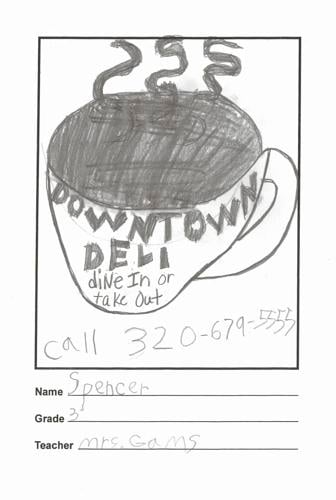 DOWNTOWN
DELI
diNe In or
take Out
call 320-679-5555
Name Spencer
Grade 3
Teacher mrs. Gams